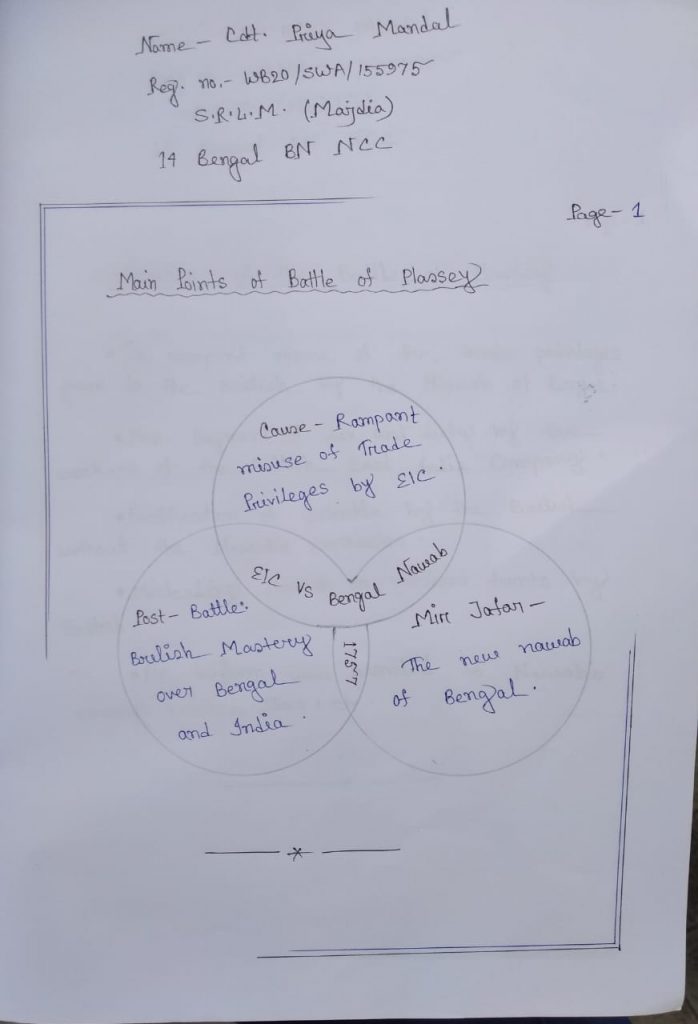 Name - Cdt. Priya Mandal
Reg. no.- WB20/SWA/155975
S.R.L.M. (Majdia)
14 Bengal BN NCC
Page- 1
Main Points of Battle of Plassey
Cause - Rampant
misuse of Trade
Privileges by EIC.
EIC vs Bengal Nawab
Post - Battle:
British Mastery
over Bengal
and India.
1757
Mir Jafar -
The new nawab
of Bengal.